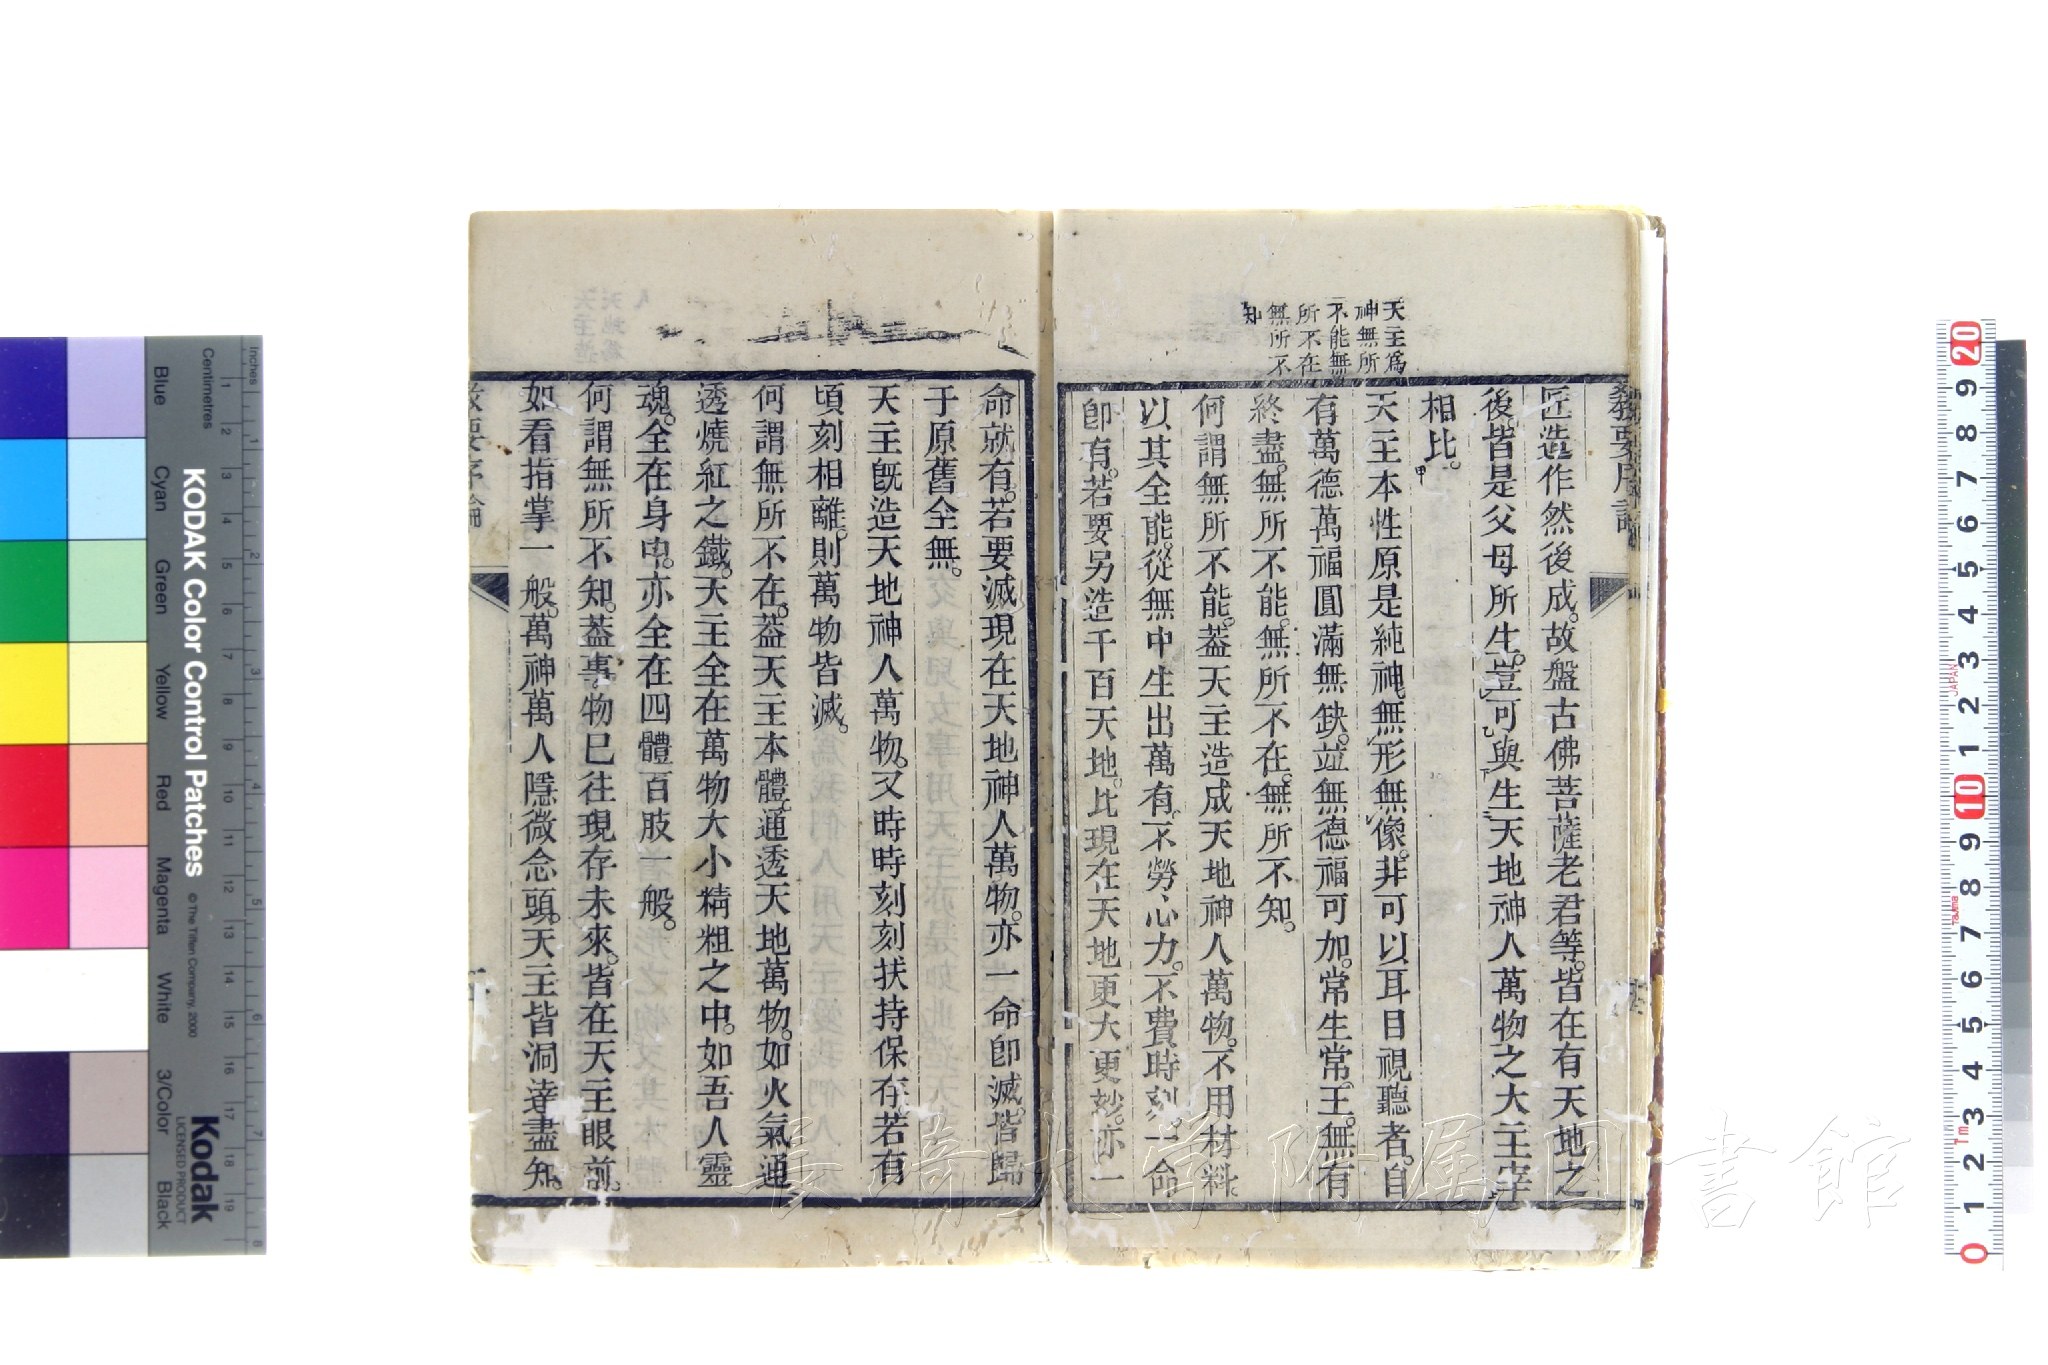 教要序論
匠造作然後成。故盤古佛菩薩老君等。皆在有天地之
後。皆是父母所生。豈可與生天地神人萬物之大主宰
相比。
天主為
神無所
不能無
所不在
無所不
知
天主本性原是純神。無形無像。非可以耳目視聽者。自
有萬德萬福圓滿無缺。並無德福可加。常生常王。無有
終盡。無所不能。無所不在。無所不知。
何謂無所不能。葢天主造成天地神人萬物。不用材料。
以其全能。從無中生出萬有。不勞心力。不費時刻。一命
卽有。若要另造千百天地。比現在天地更大更妙。亦一
命就有。若要滅現在天地神人萬物。亦一命卽滅。皆歸
于原舊全無。
天主旣造天地神人萬物。又時時刻刻扶持保存。若有
頃刻相離。則萬物皆滅。
何謂無所不在。葢天主本體。通透天地萬物。如火氣通
透燒紅之鐵。天主全在萬物大小精粗之中。如吾人靈
魂。全在身中。亦全在四體百肢一般。
何謂無所不知。葢事物已往現存未來。皆在天主眼前。
如看指掌一般。萬神萬人隱微念頭。天主皆洞達盡知。
教要序論
長崎大学附属図書館
KODAK Color Control Patches
© The Tiffen Company, 2000
Kodak
LICENSED PRODUCT
Inches
Centimetres
Blue
Cyan
Green
Yellow
Red
Magenta
White
3/Color
Black
1 2 3 4 5 6 7 8 9 10 11 12 13 14 15 16 17 18 19
1 2 3 4 5 6 7 8
20 9 8 7 6 5 4 3 2 1 10 9 8 7 6 5 4 3 2 1 0
JAPAN
Tajima
1m